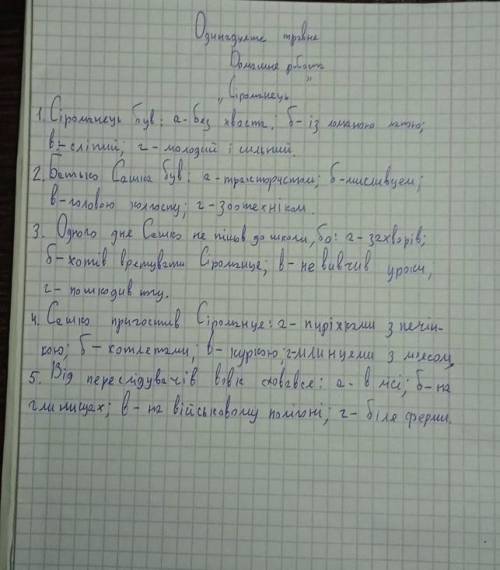 Одинадцяте травня
Домашня робота
„Сіроманець"
1. Сіроманець був: а-без хвоста; б-із ломаною лапою;
в-сліпий, г-молодий і сильний.
2. Батько Сашка був: а-трактористом; б-мисливцем;
в-головою колгоспу; г-зоотехніком.
3. Одного дня Сашко не пішов до школи, бо: а-захворів;
б-хотів врятувати Сіроманця; в-не вивчив уроки,
г-пошкодив ногу.
4. Сашко пригостив Сіроманця: а-пиріжками з печін-
кою; б-котлетами, в-куркою; г-млинцями з м'ясом.
5. Від переслідувачів вовк сховався: а-в лісі; б-на
глинищах; в-на військовому полігоні; г-біля ферми.